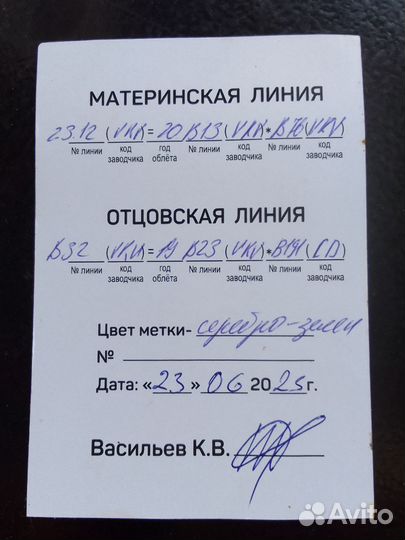 МАТЕРИНСКАЯ ЛИНИЯ
23.12 (VKV)= 20 B13 (VKV)*B76(VKV)
№ линии код заводчика год облёта № линии код заводчика № линии код заводчика
ОТЦОВСКАЯ ЛИНИЯ
B32 (VKV)= 19 B23 (VKV)*B191(CD)
№ линии код заводчика год облёта № линии код заводчика № линии код заводчика
Цвет метки- серебро-зелен
№
Дата: «23» 06 2025г.
Васильев К.В.
Avito